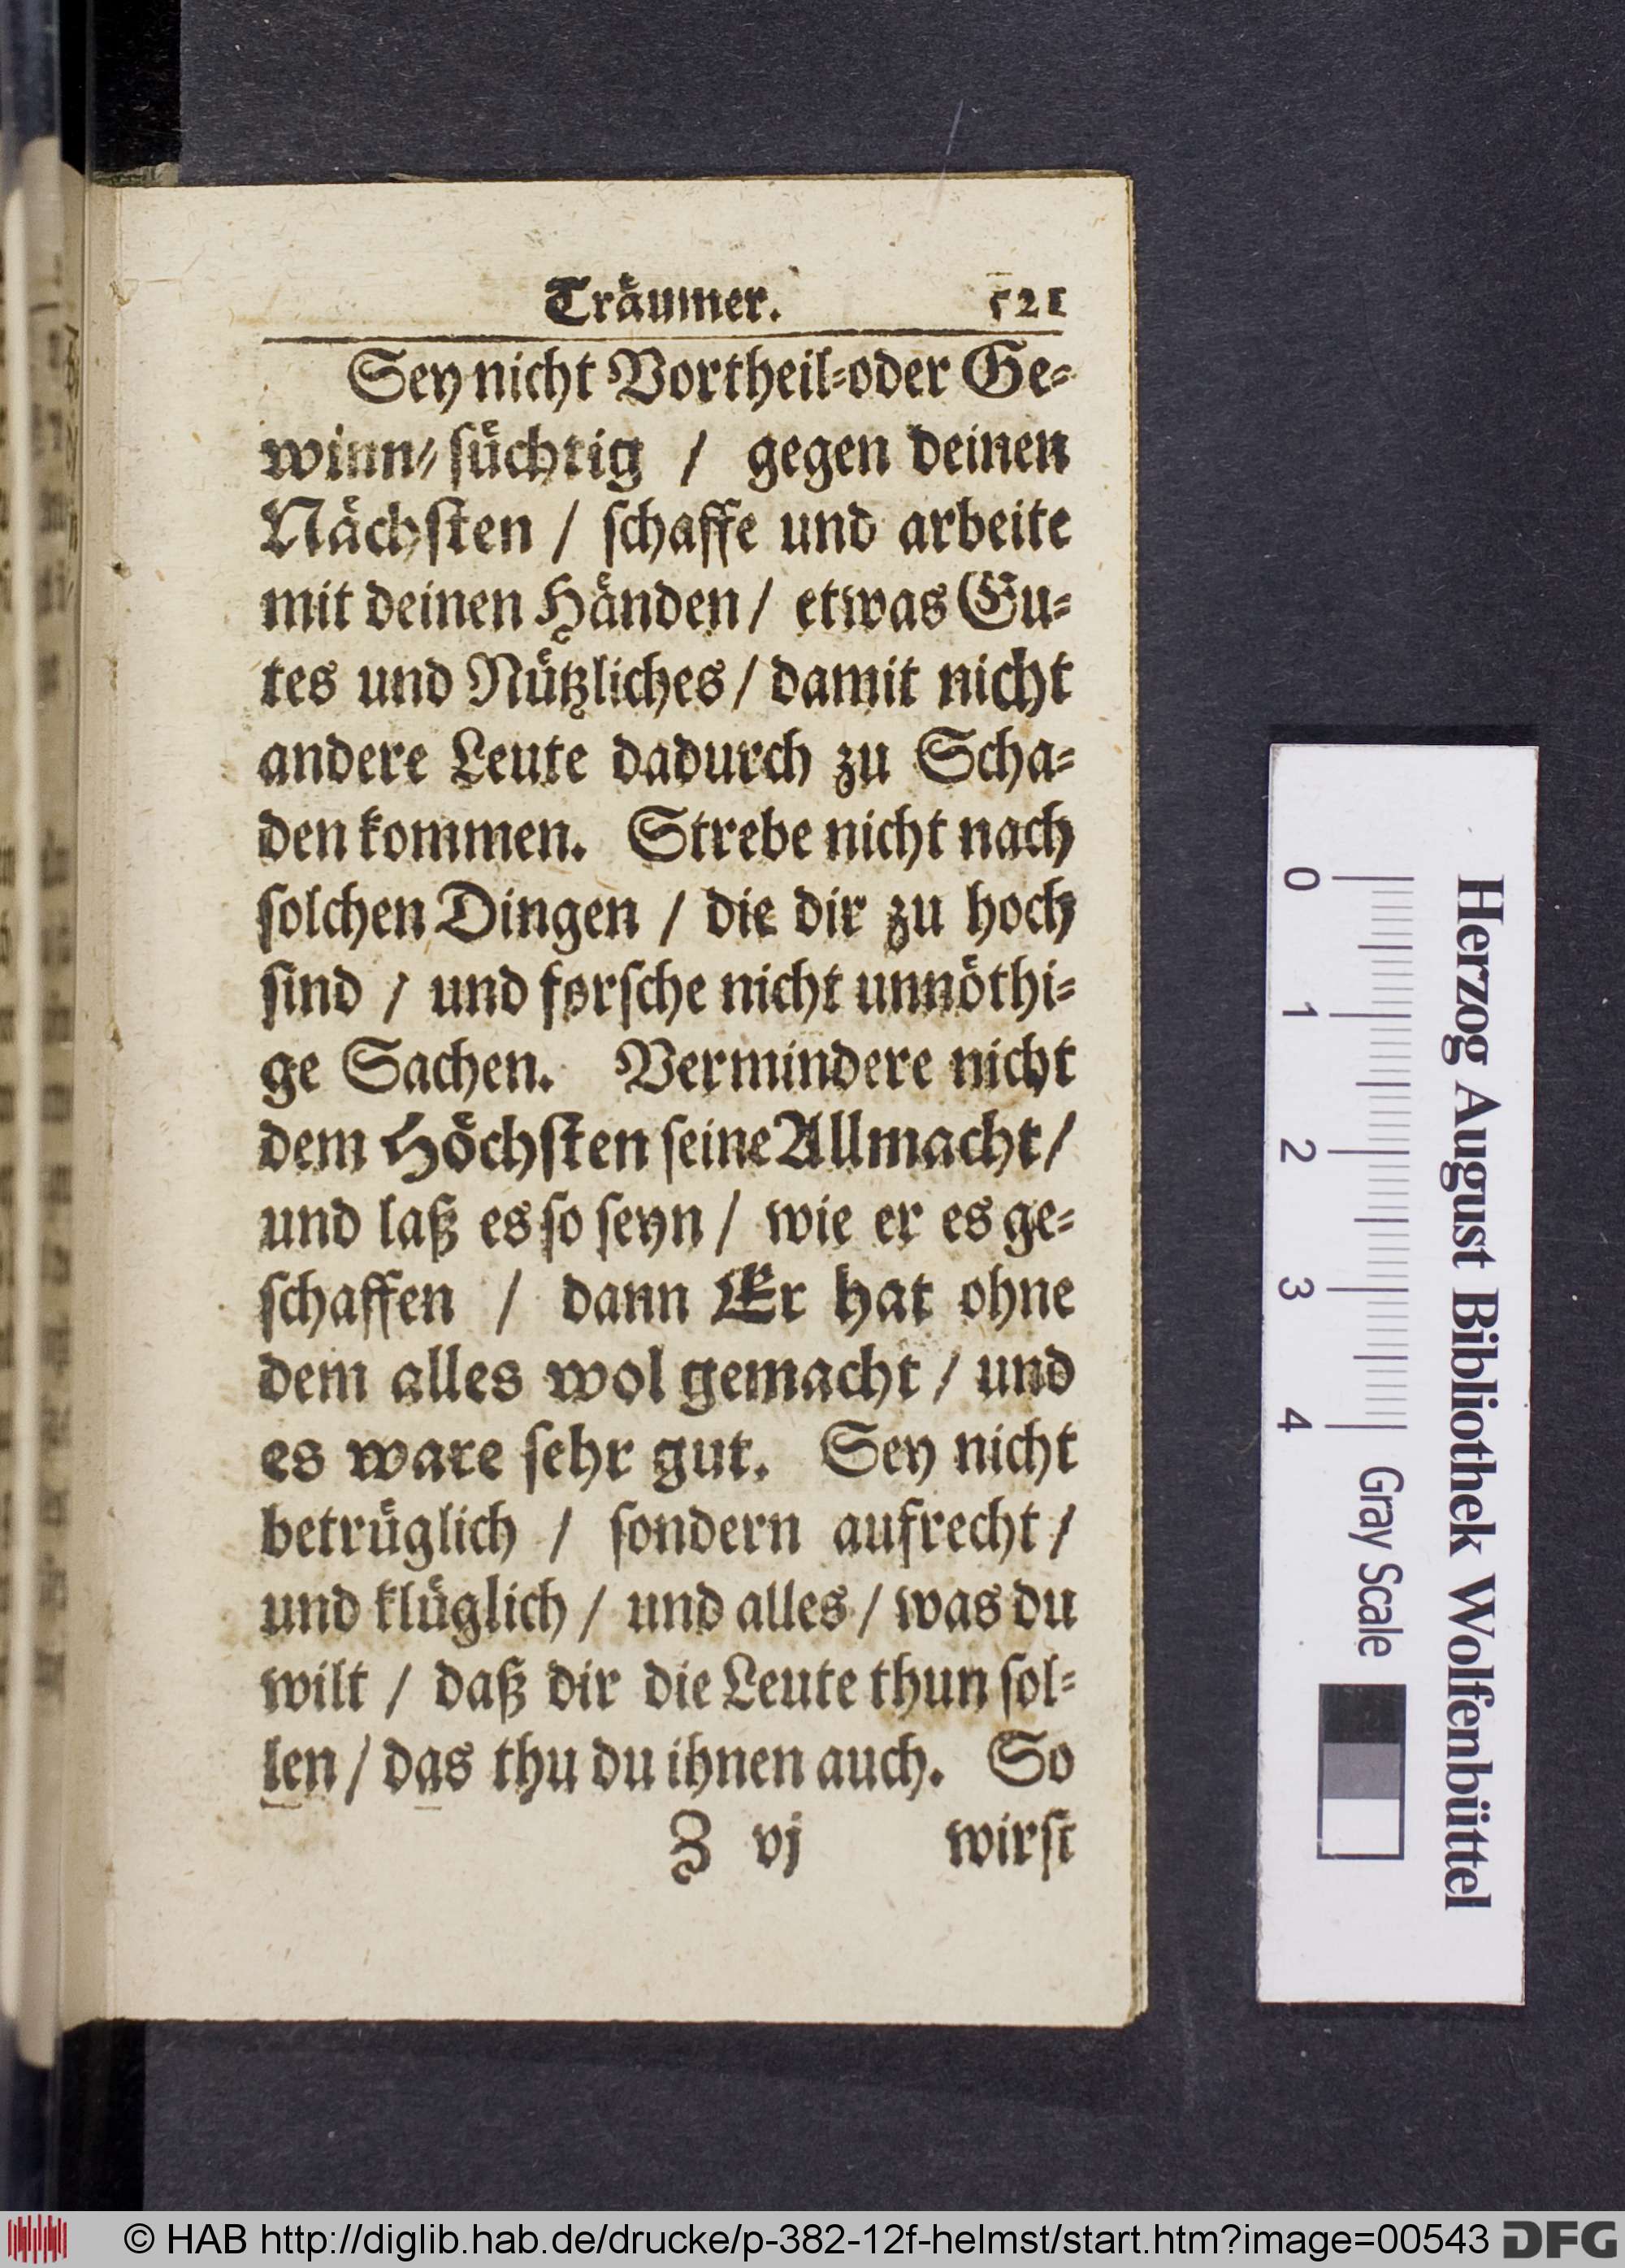 Träumer. 521
Sey nicht Vortheil-oder Ge-
winn-süchtig / gegen deinen
Nächsten / schaffe und arbeite
mit deinen Händen / etwas Gu-
tes und Nützliches / damit nicht
andere Leute dadurch zu Scha-
den kommen. Strebe nicht nach
solchen Dingen / die dir zu hoch
sind / und forsche nicht unnöthi-
ge Sachen. Vermindere nicht
dem Höchsten seine Allmacht /
und laß es so seyn / wie er es ge-
schaffen / dann Er hat ohne
dem alles wol gemacht / und
es ware sehr gut. Sey nicht
betrüglich / sondern aufrecht /
und klüglich / und alles / was du
wilt / daß dir die Leute thun sol-
len / das thu du ihnen auch. So
Z vj wirst
Herzog August Bibliothek Wolfenbüttel
0 1 2 3 4 Gray Scale
© HAB http://diglib.hab.de/drucke/p-382-12f-helmst/start.htm?image=00543 DFG